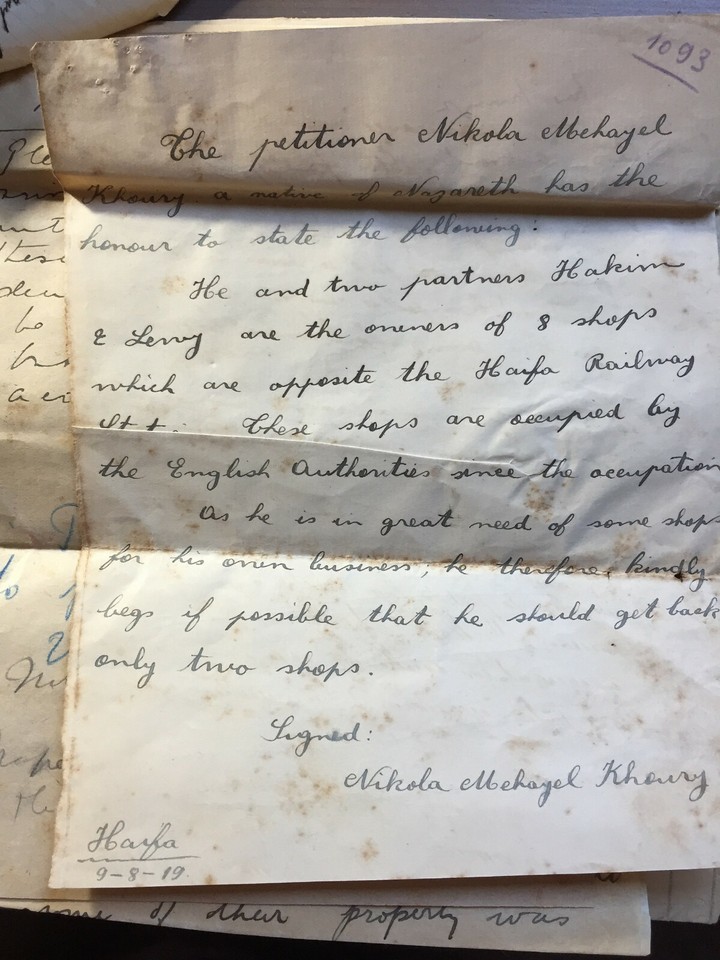 1093
The petitioner Nikola Mehayel
Khoury a native of Nazareth has the
honour to state the following:
He and two partners Hakim
& Levvy are the owners of 8 shops
which are opposite the Haifa Railway
These shops are occupied by
the English Authorities since the occupation
As he is in great need of some shops
for his own business; he therefore, kindly
begs if possible that he should get back
only two shops.
Signed:
Nikola Mehayel Khoury
Haifa
9-8-19.
of their property was